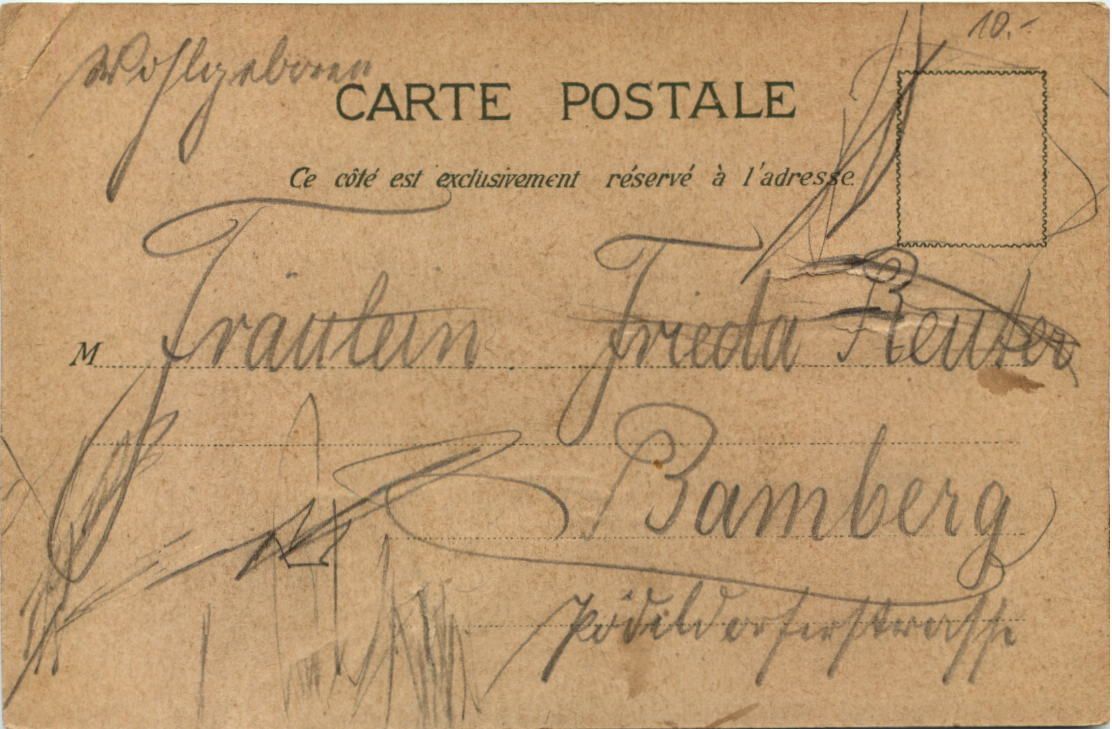 10.-
Wohlgeboren
CARTE POSTALE
Ce côté est exclusivement réservé à l'adresse.
M Fräulein Frieda Reuter
Bamberg
Pödeldorferstrasse